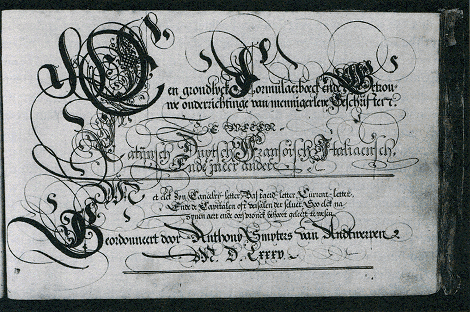 Een grondlyck Formulaerboeck ende Getrou-
we onderrichtinge van mennigerleij Geschriften.
TE WETEN
Latynsch Duytsch Fransoisch Italiaensch,
Ende meer andere
Met elck zyn Cancelry-letter, Bastaerd-letter, Current-letter.
Ende de Capitalen oft versalen der selver. Soo elck na
synen aert ende
Geordonneert door Anthony Smyters van Andtwerpen
M. D. Lxxxv.